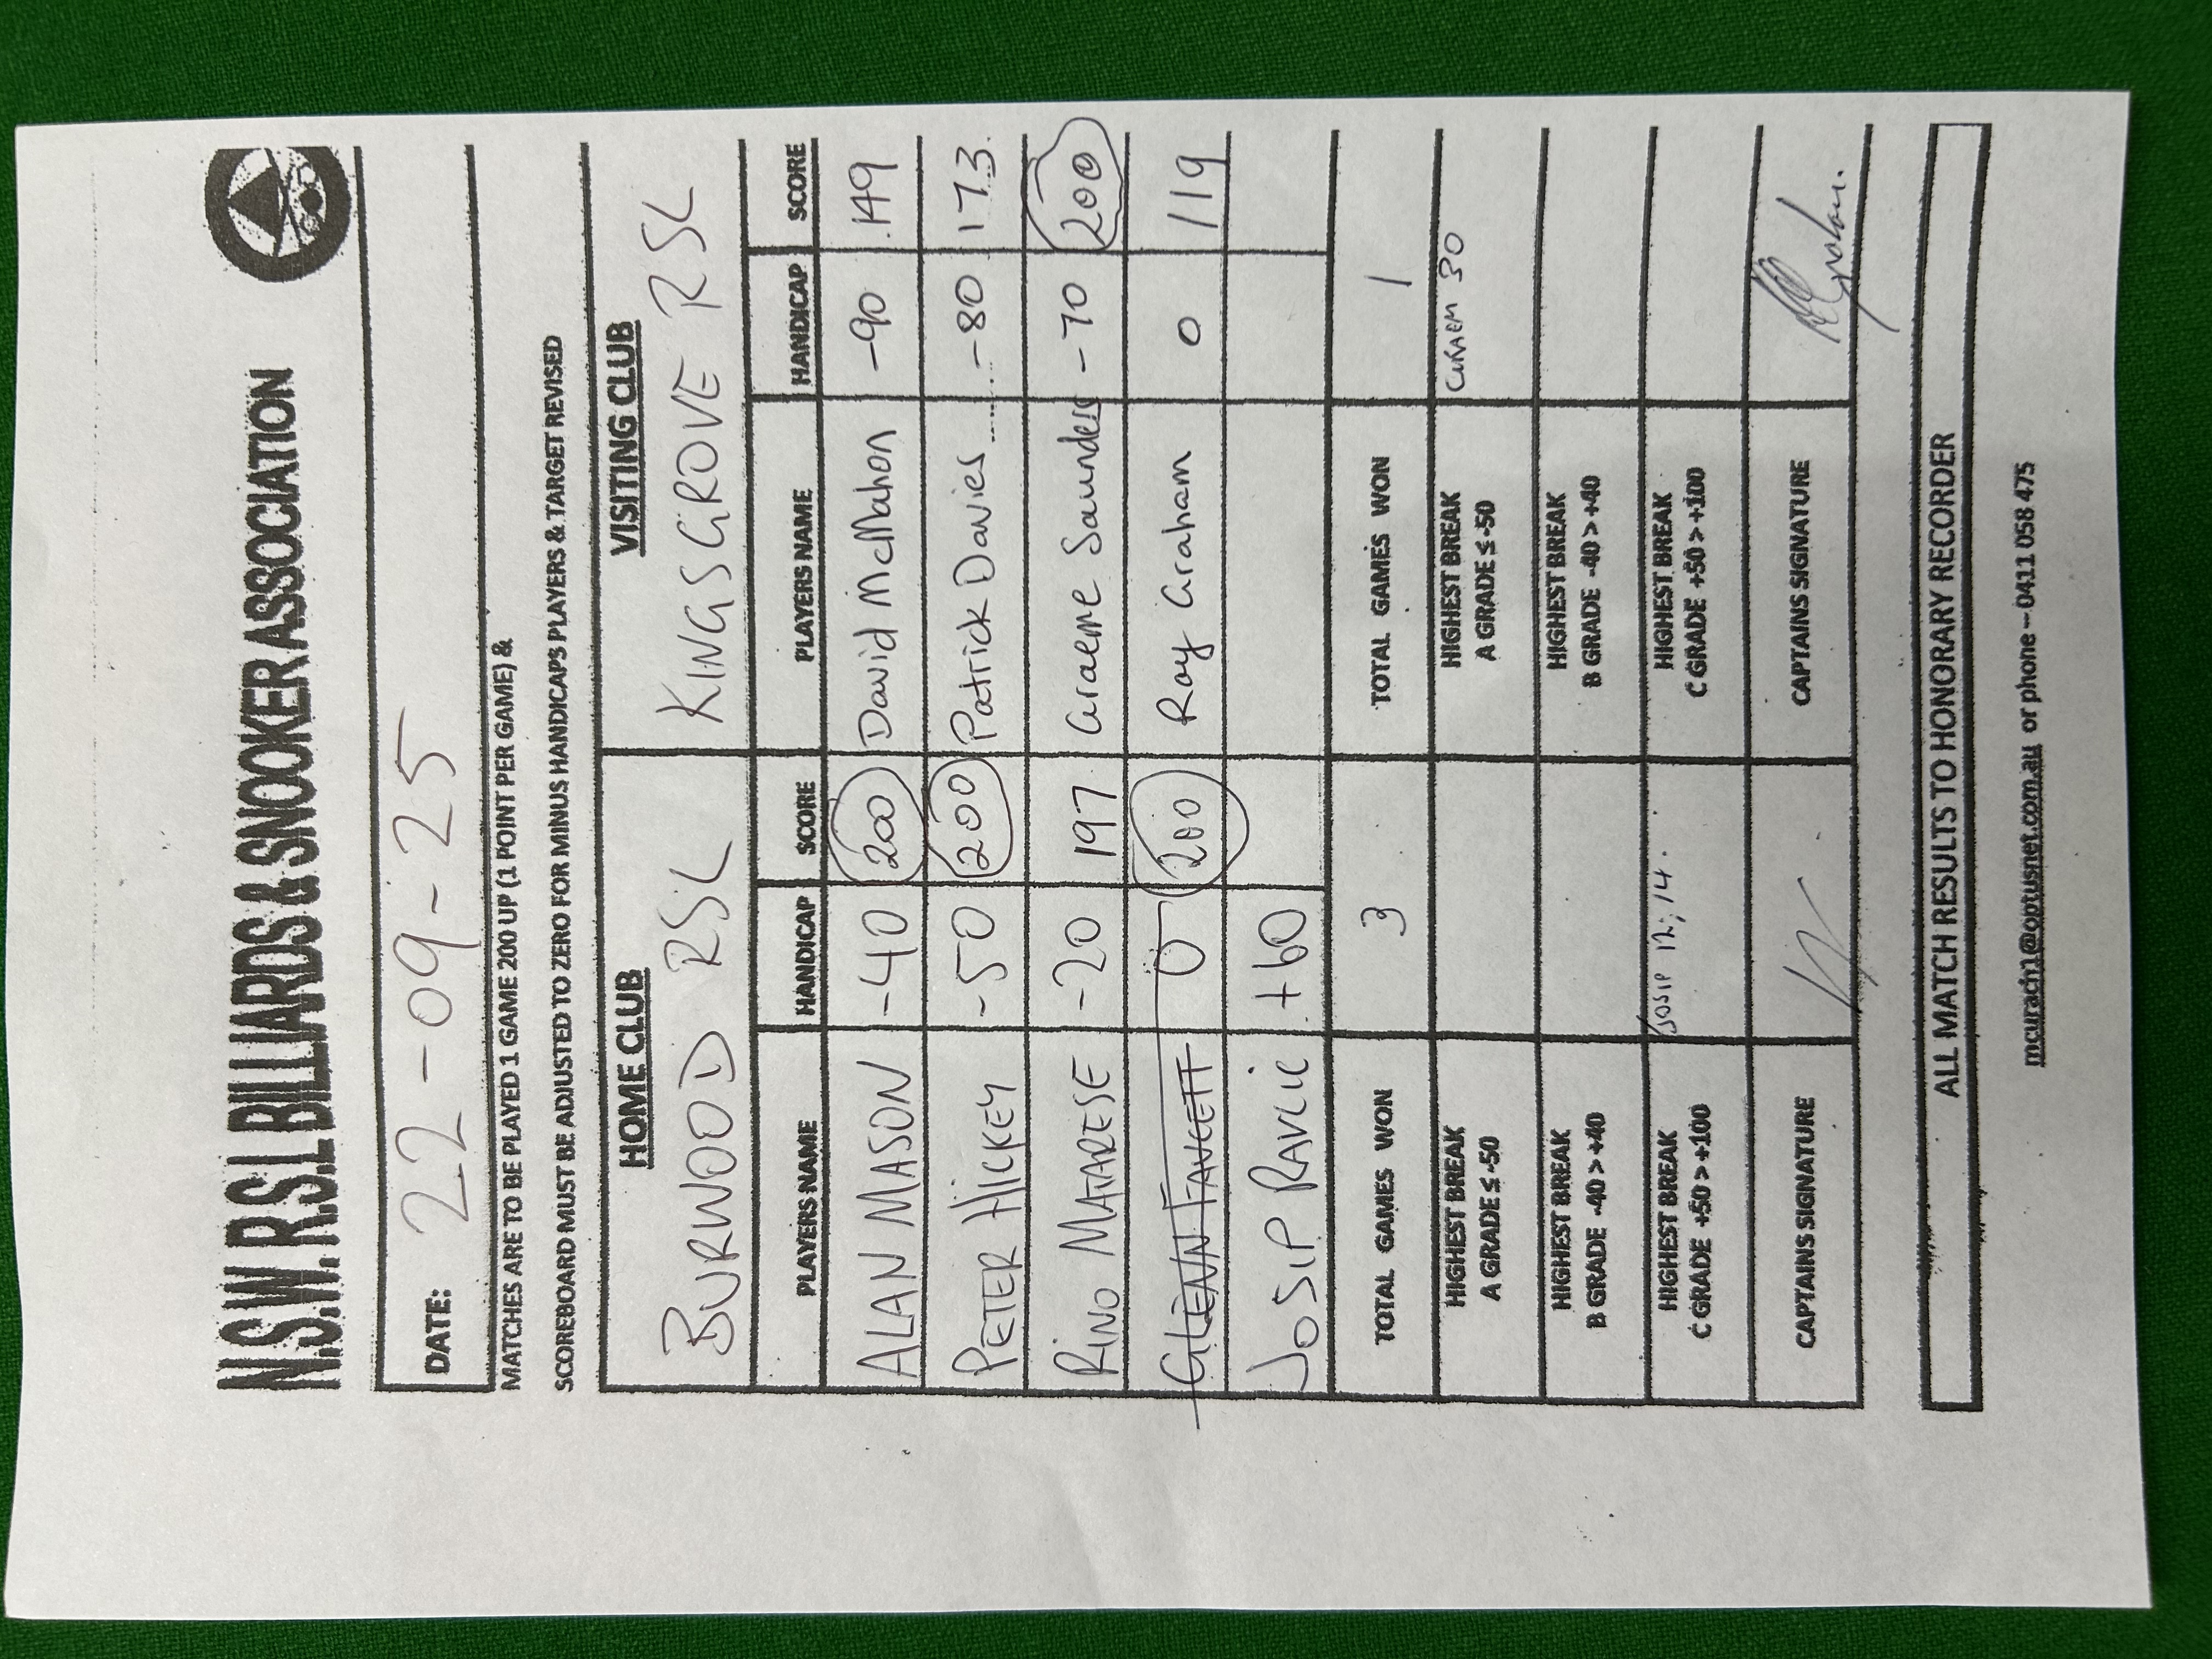 N.S.W. R.S.L BILLIARDS & SNOOKER ASSOCIATION
DATE: 22-09-25
MATCHES ARE TO BE PLAYED 1 GAME 200 UP (1 POINT PER GAME) &
SCOREBOARD MUST BE ADJUSTED TO ZERO FOR MINUS HANDICAPS PLAYERS & TARGET REVISED
HOME CLUB VISITING CLUB
BURWOOD RSL KINGSGROVE RSL
PLAYERS NAME HANDICAP SCORE PLAYERS NAME HANDICAP SCORE
ALAN MASON -40 200 David McMahon -90 149
PETER HICKEY -50 200 Patrick Davies -80 173
RINO MATARESE -20 197 Graeme Saunders -70 200
GLENN FAWCETT 0 200 Ray Graham 0 119
JOSIP RAVLIC +60
TOTAL GAMES WON 3 TOTAL GAMES WON 1
HIGHEST BREAK HIGHEST BREAK
A GRADE ≤ -50 A GRADE ≤ -50 30
HIGHEST BREAK HIGHEST BREAK
B GRADE -40 > +40 B GRADE -40 > +40
HIGHEST BREAK JOSIP 12, 14. HIGHEST BREAK
C GRADE +50 > +100 C GRADE +50 > +100
CAPTAINS SIGNATURE CAPTAINS SIGNATURE
ALL MATCH RESULTS TO HONORARY RECORDER
mcurach1@optusnet.com.au or phone – 0411 058 475